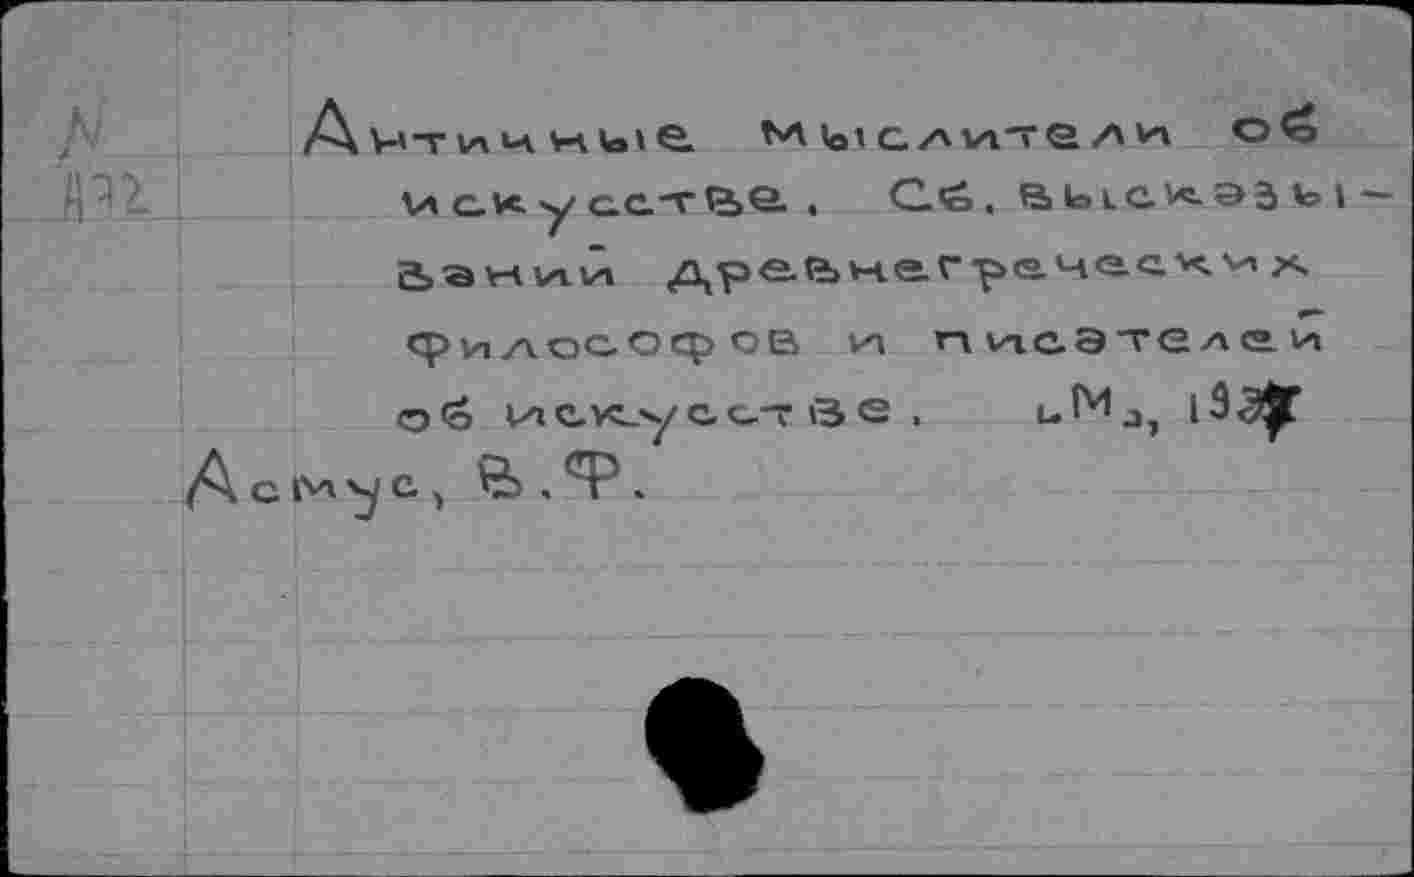 N
Античные мыслители об
А72
искусстве. Сб. высказы-
ваний древнегреческих
философов и писателей
об искусстве. М.,
Асмус, В.Ф.